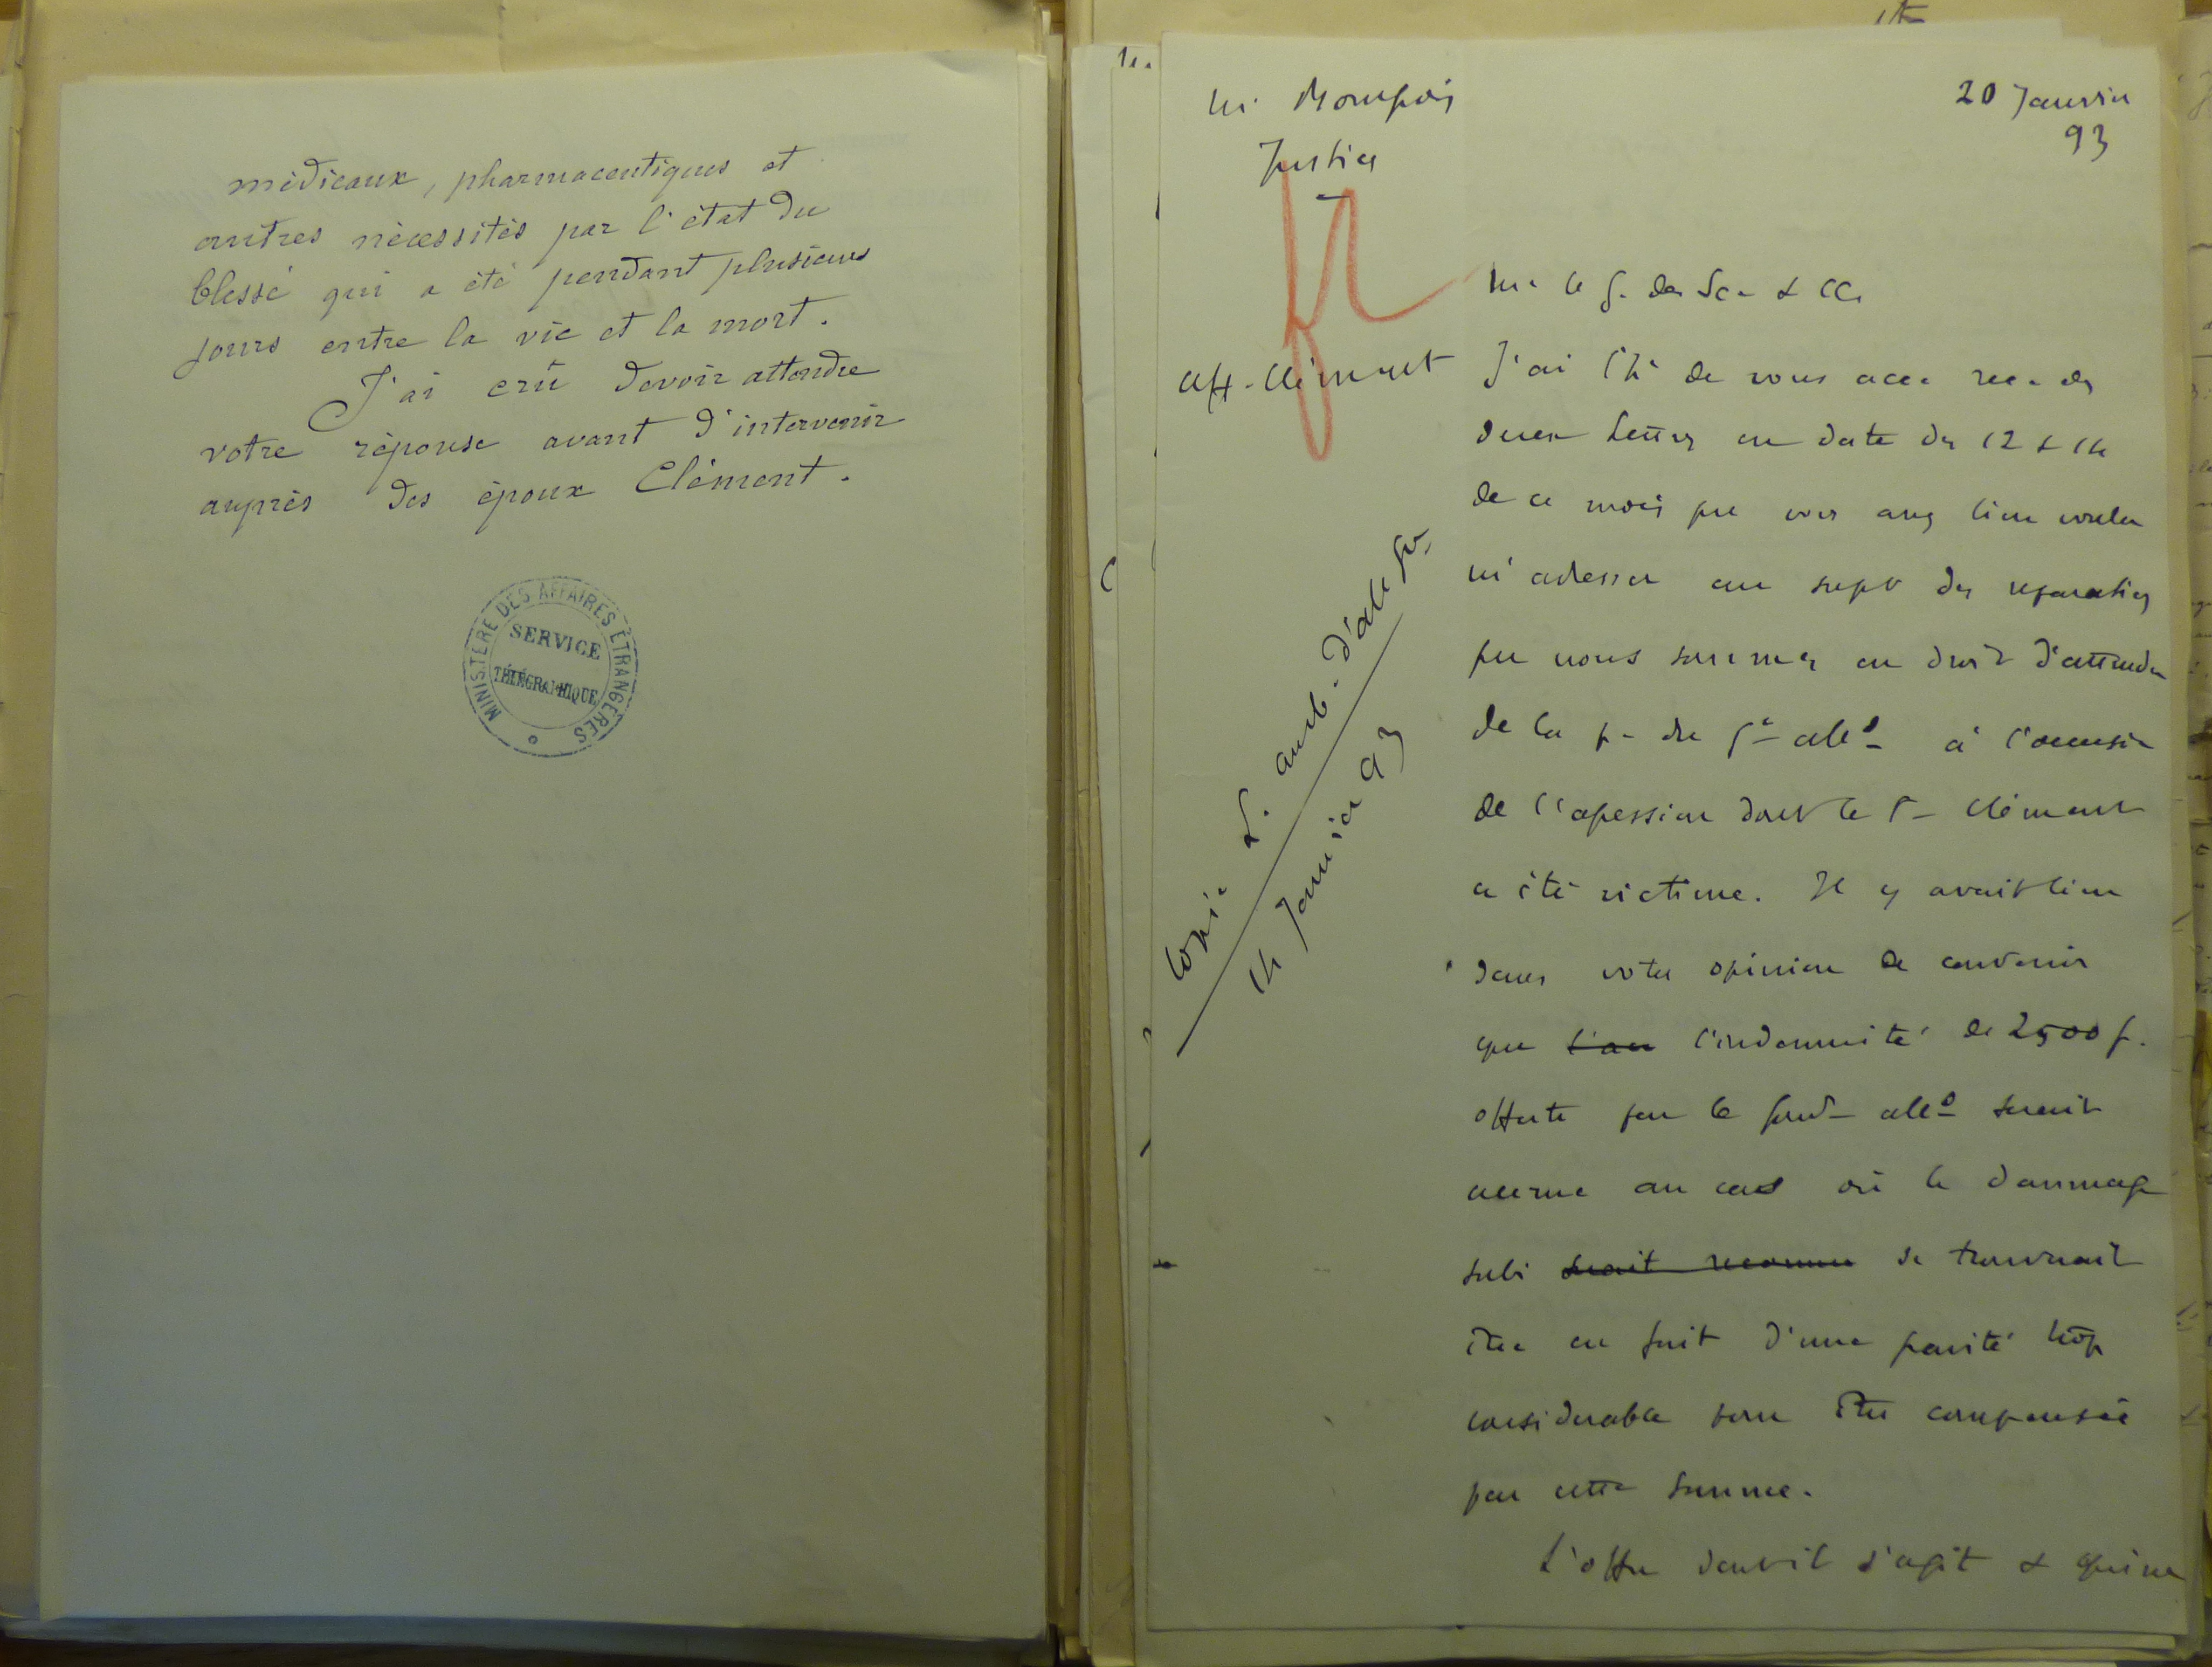 médicaux, pharmaceutiques et
autres nécessités par l'état du
blessé qui a été pendant plusieurs
jours entre la vie et la mort.
J'ai crû devoir attendre
votre réponse avant d'intervenir
auprès des époux Clément.
MINISTÈRE DES AFFAIRES ÉTRANGÈRES
SERVICE
TÉLÉGRAPHIQUE
20 Janvier
93
Justice
Mr le G. des Sc. & CC.
aff. Clément
J'ai l'h. de vous acc. rec. des
deux lettres en date des 12 & 14
de ce mois que vous avez bien voulu
m'adresser au sujet des réparations
que nous sommes en droit d'attendre
de la p. du Gt all^d à l'occasion
de l'agression dont le Sr Clément
a été victime. Il y avait lieu
dans votre opinion de convenir
que l'indemnité de 2500 f.
offerte par le Gouvt all^d serait
accrue au cas où le dommage
subi serait reconnu se trouverait
être en fait d'une gravité trop
considérable pour être compensée
par cette somme.
L'offre dont il s'agit &
Copie d. amb. d'all.
14 Janvier 93